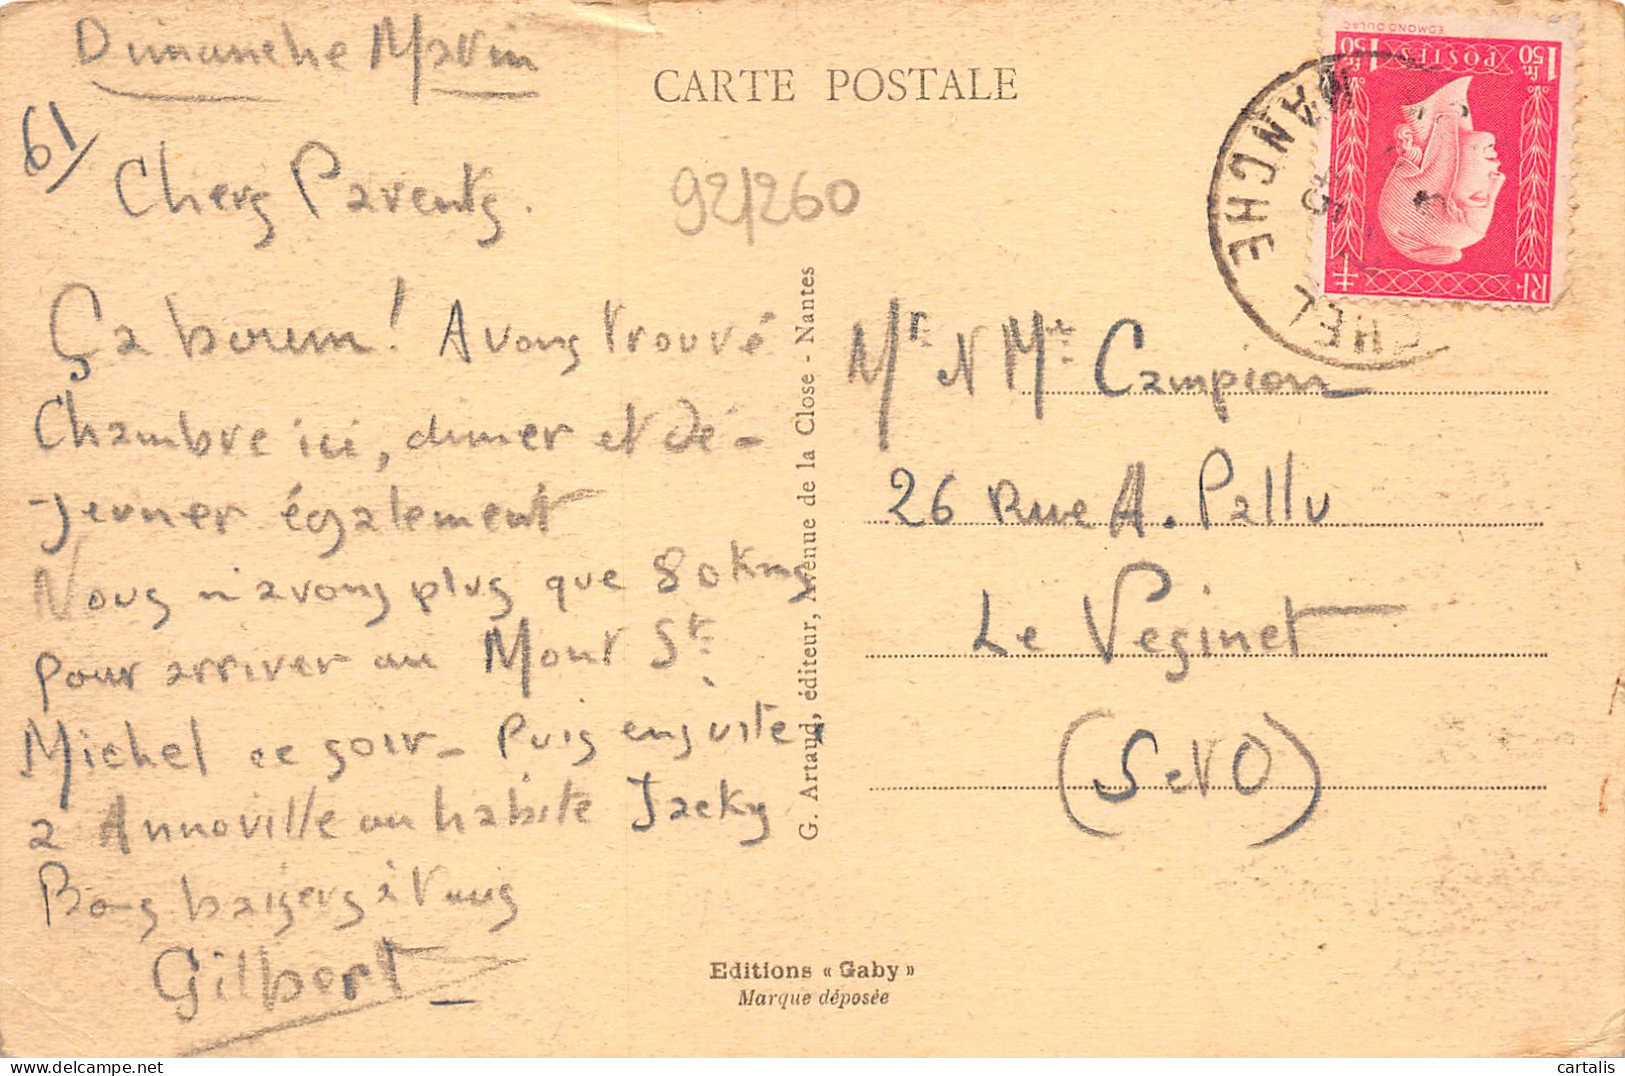 Dimanche Matin
CARTE POSTALE
61/
Chers Parents.
92/260
Ça boum! Avons trouvé
Chambre ici, dîner et dé-
jeuner également
Nous n'avons plus que 80 kms
pour arriver au Mont St.
Michel ce soir - Puis ensuite,
a Annoville ou habite Jacky
Bons baisers à vous
Gilbert
G. Artaud, éditeur, Avenue de la Close - Nantes
Mr et Mme Campion
26 Rue A. Pallu
Le Vesinet
(S et O)
Editions « Gaby »
Marque déposée
EDMOND DULAC
1 50 fr. POSTES 1 50 fr.
RF
MANCHE
cartalis